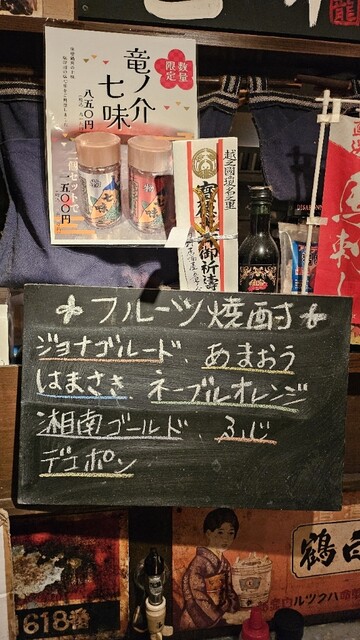 竜ノ介
七味
数量
限定
八五〇円
二個セットで
一五〇〇円
七味
七味
御祈祷
馬刺し
フルーツ焼酎
ジョナゴルード、あまおう
はまさき、ネーブルオレンジ
湘南ゴールド、ふじ
デコポン
618番
鶴